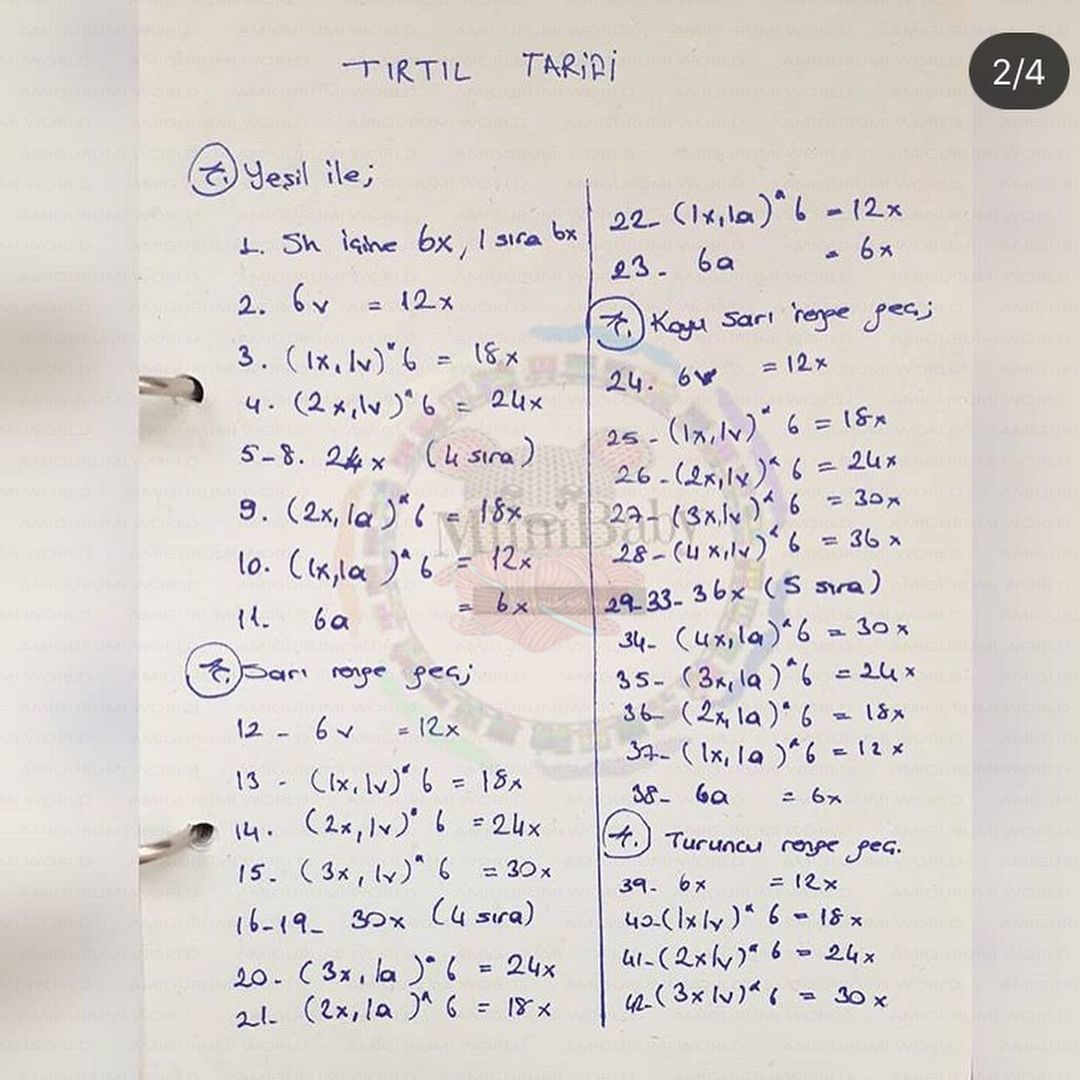 TIRTIL TARİFİ
2/4
Yeşil ile;
1. Sh içine 6x, 1 sıra 6x
2. 6v = 12x
3. (1x,1v)*6 = 18x
4. (2x,1v)*6 = 24x
5-8. 24x (4 sıra)
9. (2x,1a)*6 = 18x
10. (1x,1a)*6 = 12x
11. 6a = 6x
Sarı renge geç;
12- 6v = 12x
13- (1x,1v)*6 = 18x
14. (2x,1v)*6 = 24x
15- (3x,1v)*6 = 30x
16-19- 30x (4 sıra)
20- (3x,1a)*6 = 24x
21- (2x,1a)*6 = 18x
22- (1x,1a)*6 = 12x
23- 6a = 6x
Koyu sarı renge geç;
24. 6v = 12x
25- (1x,1v)*6 = 18x
26- (2x,1v)*6 = 24x
27- (3x,1v)*6 = 30x
28- (4x,1v)*6 = 36x
29-33- 36x (5 sıra)
34- (4x,1a)*6 = 30x
35- (3x,1a)*6 = 24x
36- (2x,1a)*6 = 18x
37- (1x,1a)*6 = 12x
38- 6a = 6x
Turuncu renge geç.
39- 6x = 12x
40- (1x1v)*6 = 18x
41- (2x1v)*6 = 24x
42- (3x1v)*6 = 30x
MimiBaby
AMIGURUMI WORLD